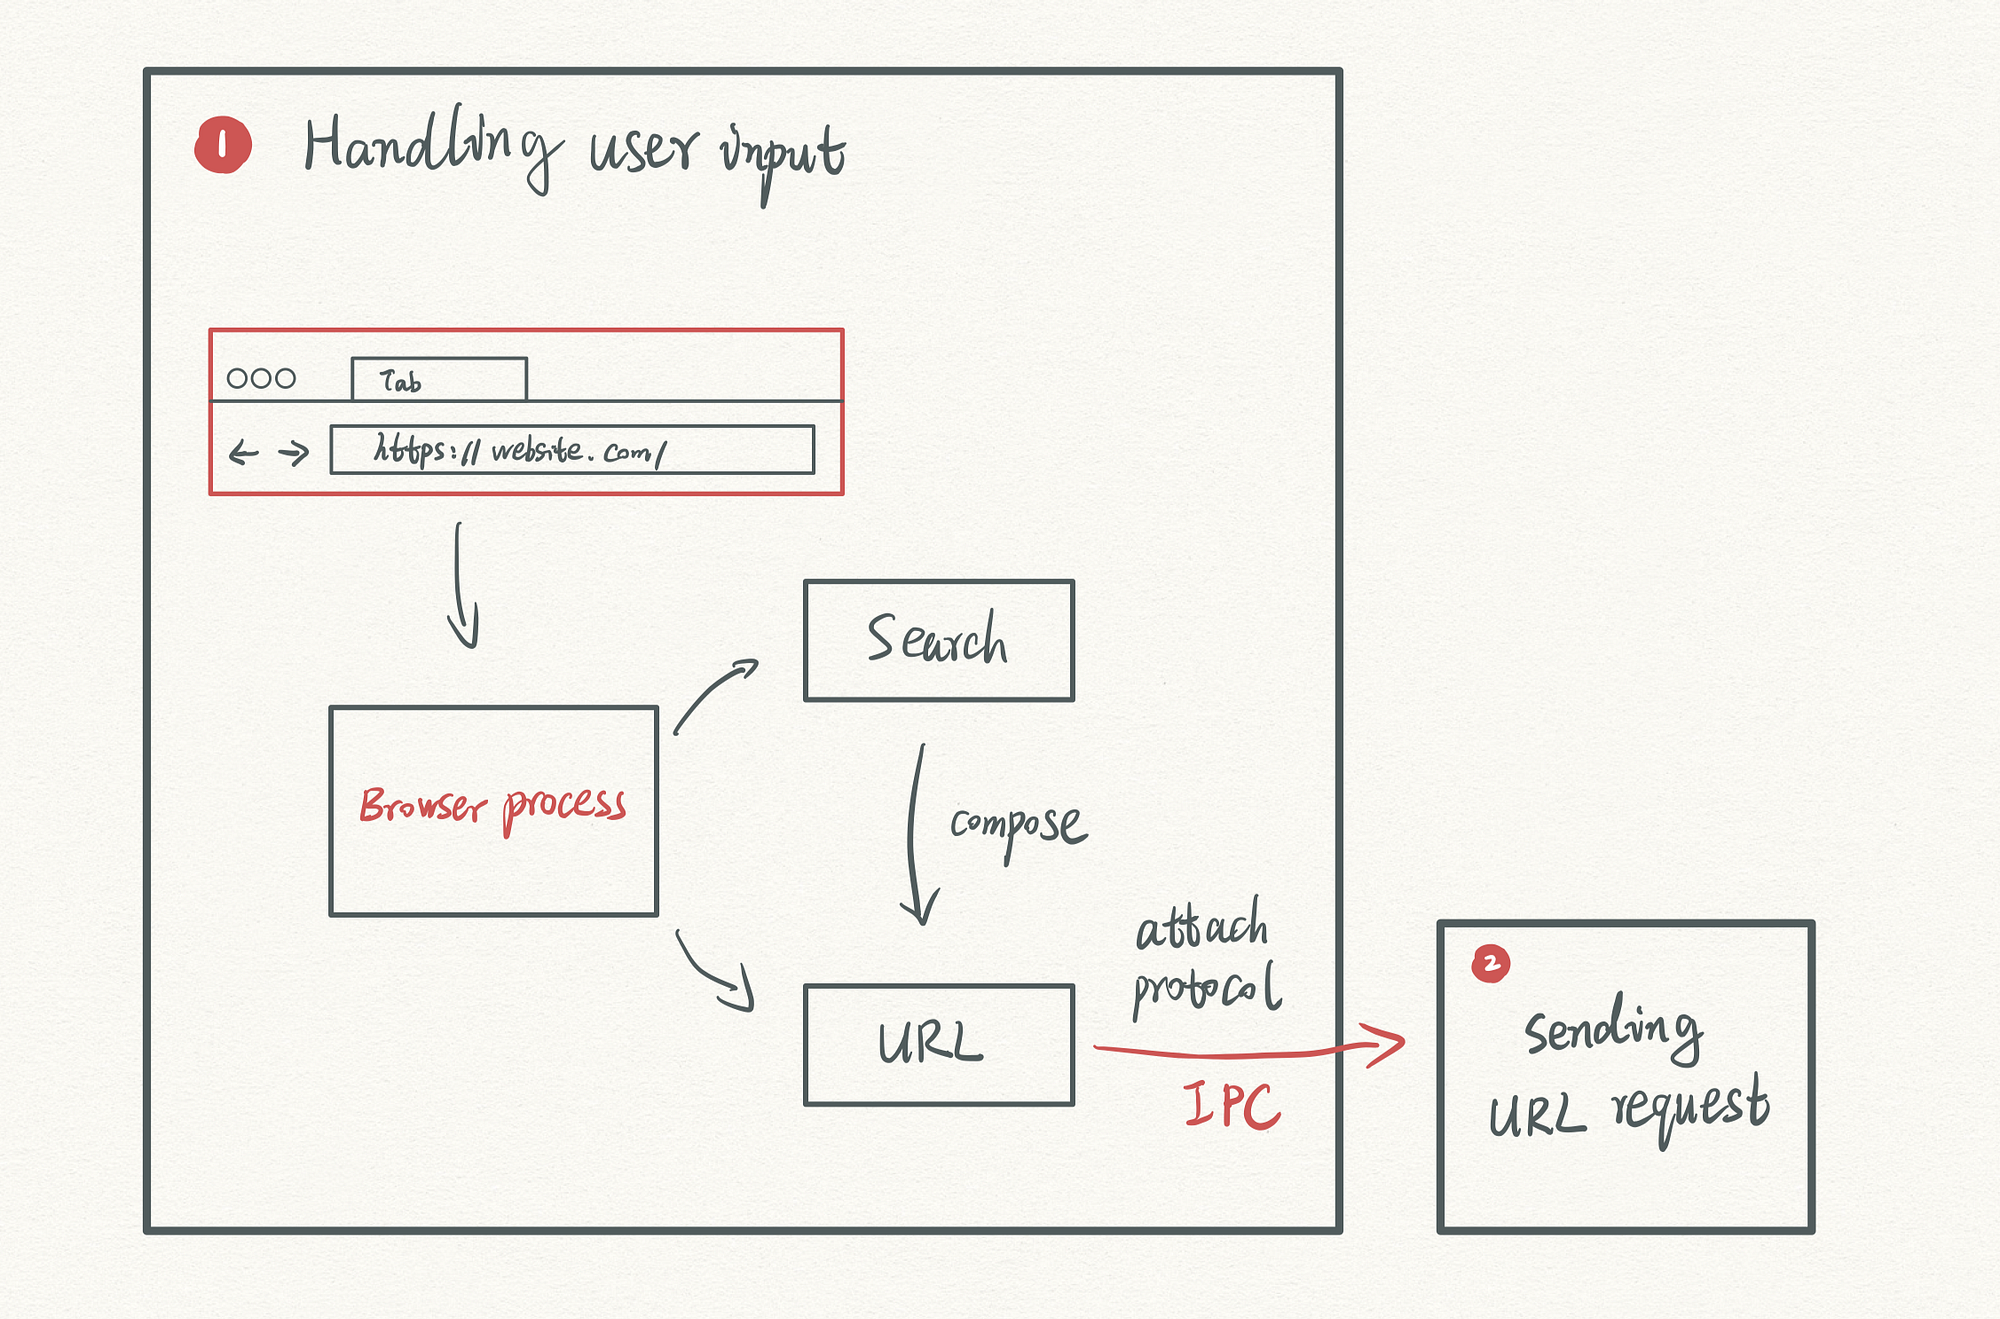 1 Handling user input
Tab
https://website.com/
Search
Browser process
compose
attach
protocol
URL
IPC
2
Sending
URL request